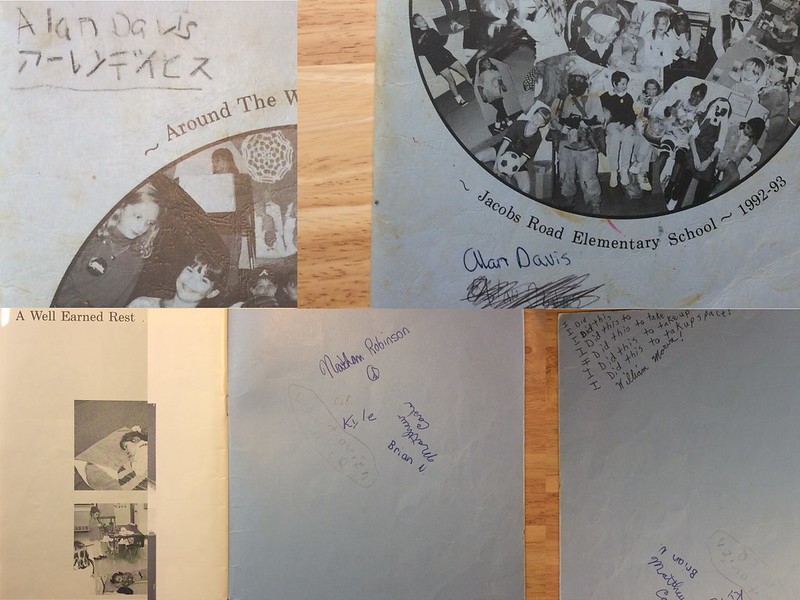 Alan Davis
アーレンデイビス
~ Around The W
~ Jacobs Road Elementary School ~ 1992-93
Alan Davis
A Well Earned Rest
Nathan Robinson
Kyle
Matthew
Brian N
I Did
I Did this
I Did this to
I Did this to take
I Did this to take up
I Did this to takup space!
William Moore!
Brian N
Matthew
Co